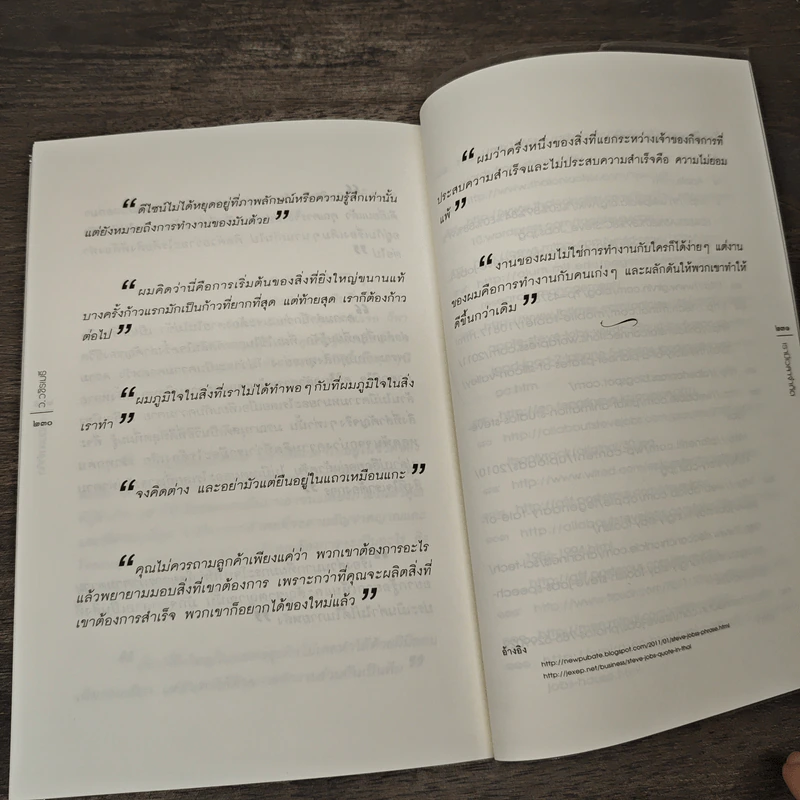 “ ดีไซน์ไม่ได้หยุดอยู่ที่ภาพลักษณ์หรือความรู้สึกเท่านั้น
แต่ยังหมายถึงการทำงานของมันด้วย ”
“ ผมคิดว่านี่คือการเริ่มต้นของสิ่งที่ยิ่งใหญ่ขนานแท้
บางครั้งก้าวแรกมักเป็นก้าวที่ยากที่สุด แต่ท้ายสุด เราก็ต้องก้าว
ต่อไป ”
“ ผมภูมิใจในสิ่งที่เราไม่ได้ทำพอๆ กับที่ผมภูมิใจในสิ่ง
เราทำ ”
“ จงคิดต่าง และอย่ามัวแต่ยืนอยู่ในแถวเหมือนแกะ ”
“ คุณไม่ควรถามลูกค้าเพียงแค่ว่า พวกเขาต้องการอะไร
แล้วพยายามมอบสิ่งที่เขาต้องการ เพราะกว่าที่คุณจะผลิตสิ่งที่
เขาต้องการสำเร็จ พวกเขาก็อยากได้ของใหม่แล้ว ”
๒๓๐
“ ผมว่าครึ่งหนึ่งของสิ่งที่แยกระหว่างเจ้าของกิจการที่
ประสบความสำเร็จและไม่ประสบความสำเร็จคือ ความไม่ยอม
แพ้ ”
“ งานของผมไม่ใช่การทำงานกับใครก็ได้ง่ายๆ แต่งาน
ของผมคือการทำงานกับคนเก่งๆ และผลักดันให้พวกเขาทำให้
ดีขึ้นกว่าเดิม ”
๒๓๑
อ้างอิง
http://newpubate.blogspot.com/2011/01/steve-jobs-phrass.html
http://jexep.net/business/steve-jobs-quote-in-thai